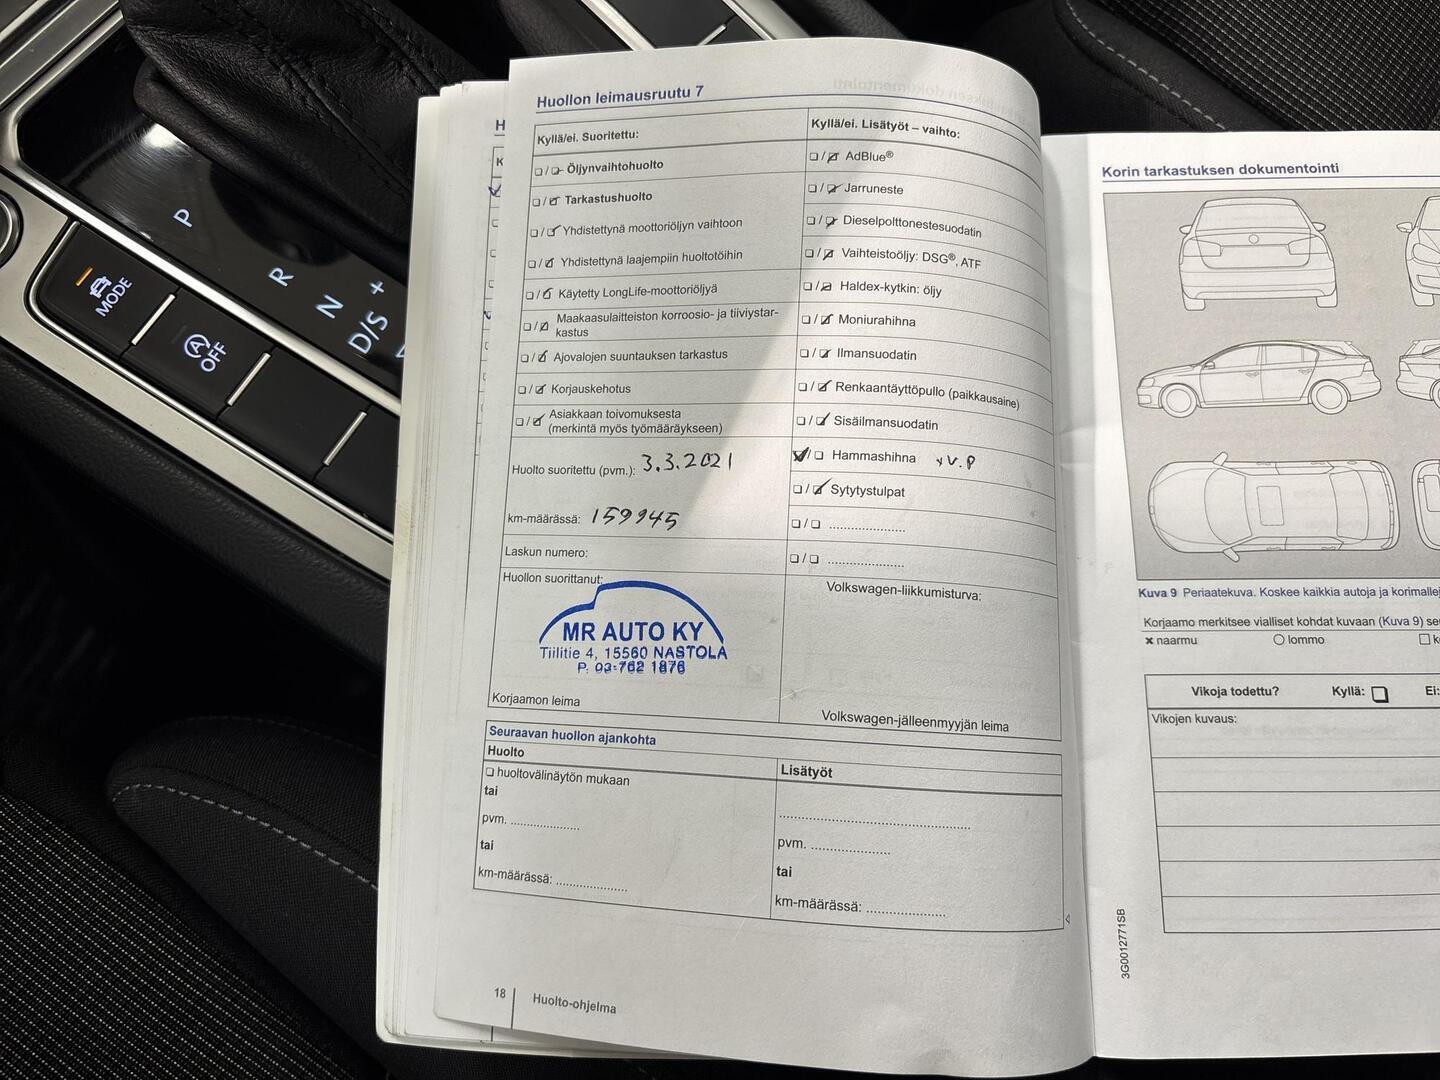 P
R
N
+
D/S
MODE
OFF
Huollon leimausruutu 7
Kyllä/ei. Suoritettu:
Öljynvaihtohuolto
Tarkastushuolto
Yhdistettynä moottoriöljyn vaihtoon
Yhdistettynä laajempiin huoltotöihin
Käytetty LongLife-moottoriöljyä
Maakaasulaitteiston korroosio- ja tiiviystar-
kastus
Ajovalojen suuntauksen tarkastus
Korjauskehotus
Asiakkaan toivomuksesta
(merkintä myös työmääräykseen)
Huolto suoritettu (pvm.): 3.3.2021
km-määrässä: 159945
Laskun numero:
Huollon suorittanut:
MR AUTO KY
Tiilitie 4, 15560 NASTOLA
P. 03-762 1876
Korjaamon leima
Kyllä/ei. Lisätyöt – vaihto:
AdBlue®
Jarruneste
Dieselpolttonestesuodatin
Vaihteistoöljy: DSG®, ATF
Haldex-kytkin: öljy
Moniurahihna
Ilmansuodatin
Renkaantäyttöpullo (paikkausaine)
Sisäilmansuodatin
Hammashihna + V.P
Sytytystulpat
Volkswagen-liikkumisturva:
Volkswagen-jälleenmyyjän leima
Seuraavan huollon ajankohta
Huolto
huoltovälinäytön mukaan
tai
pvm. ....................
tai
km-määrässä: ....................
Lisätyöt
pvm. ....................
tai
km-määrässä: ....................
18 Huolto-ohjelma
Korin tarkastuksen dokumentointi
Kuva 9 Periaatekuva. Koskee kaikkia autoja ja
Korjaamo merkitsee vialliset kohdat kuvaan (Kuva 9)
naarmu lommo
Vikoja todettu? Kyllä: Ei:
Vikojen kuvaus:
3G0012771SB